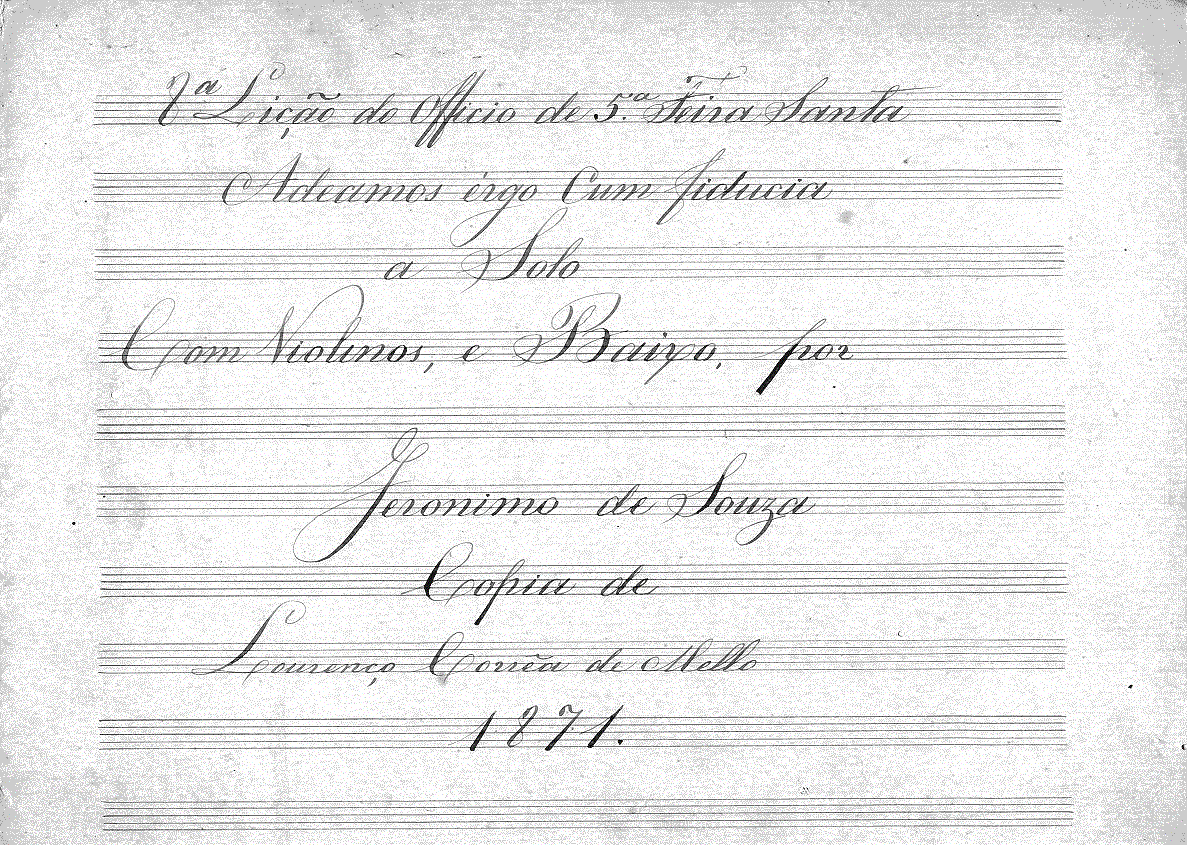 8ª Lição do Officio de 5.ª Feira Santa
Adeamos érgo Cum fiducia
a Solo
Com Violinos, e Baixo, por
Jeronimo de Souza
Copia de
Lourenço Corrêa de Mello
1871.